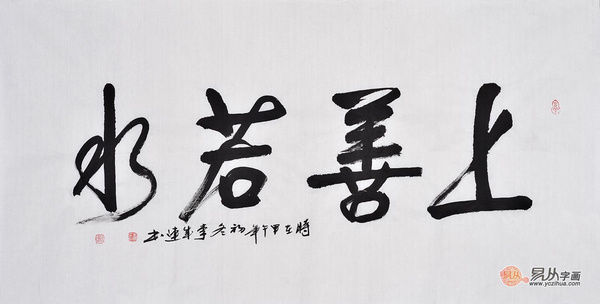 上善若水
時在甲午年初冬李成連书
易从
易从字画
www.yczihua.com